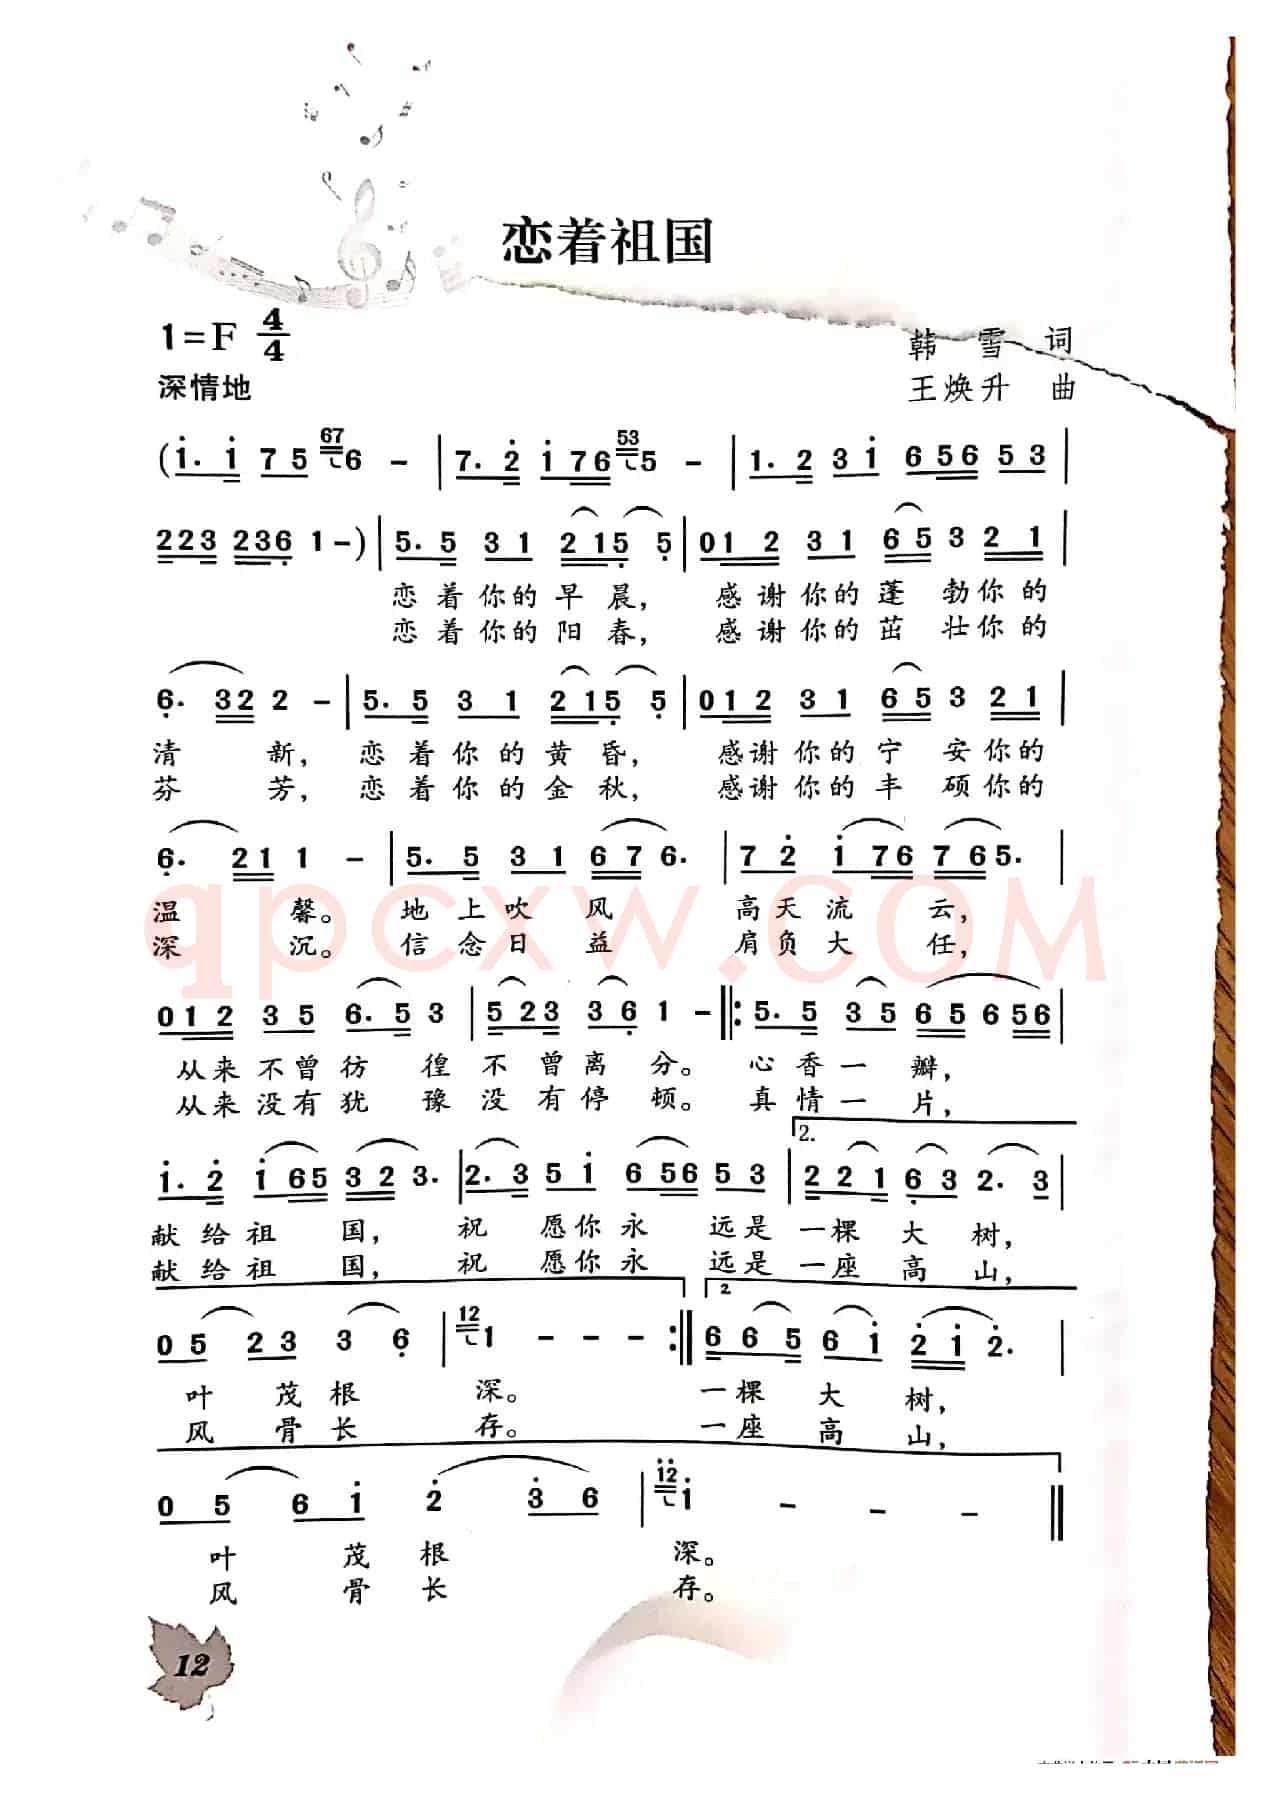 恋着祖国
1=F 4/4
韩雪 词
深情地
王焕升 曲
(1. 1 7 5 67 6 - | 7. 2 1 7 6 53 5 - | 1. 2 3 1 6 5 6 5 3 |
2 2 3 2 3 6 1 - ) | 5. 5 3 1 2 1 5 5 | 0 1 2 3 1 6 5 3 2 1 |
恋着你的早晨, 感谢你的蓬勃你的
恋着你的阳春, 感谢你的茁壮你的
6. 3 2 2 - | 5. 5 3 1 2 1 5 5 | 0 1 2 3 1 6 5 3 2 1 |
清新, 恋着你的黄昏, 感谢你的宁安你的
芬芳, 恋着你的金秋, 感谢你的丰硕你的
6. 2 1 1 1 - | 5. 5 3 1 6 7 6. | 7 2 1 7 6 7 6 5. |
温馨。 地上吹风 高天流云,
深沉。 信念日益 肩负大任,
qpcxw.COM
0 1 2 3 5 6. 5 3 | 5 2 3 3 6 1 - ‖: 5. 5 3 5 6 5 6 5 6 |
从来不曾彷徨不曾离分。 心香一瓣,
从来没有犹豫没有停顿。 真情一片,
2.
1. 2 1 6 5 3 2 3. | 2. 3 5 1 6 5 6 5 3 | 2 2 1 6 3 2. 3 |
献给祖国, 祝愿你永远是一棵大树,
献给祖国, 祝愿你永远是一座高山,
2
0 5 2 3 3 6 | 12 1 - - - :‖ 6 6 5 6 1 2 1 2. |
叶茂根深。 一棵大树,
风骨长存。 一座高山,
0 5 6 1 2 3 6 | 12 1 - - - ‖
叶茂根深。
风骨长存。
12